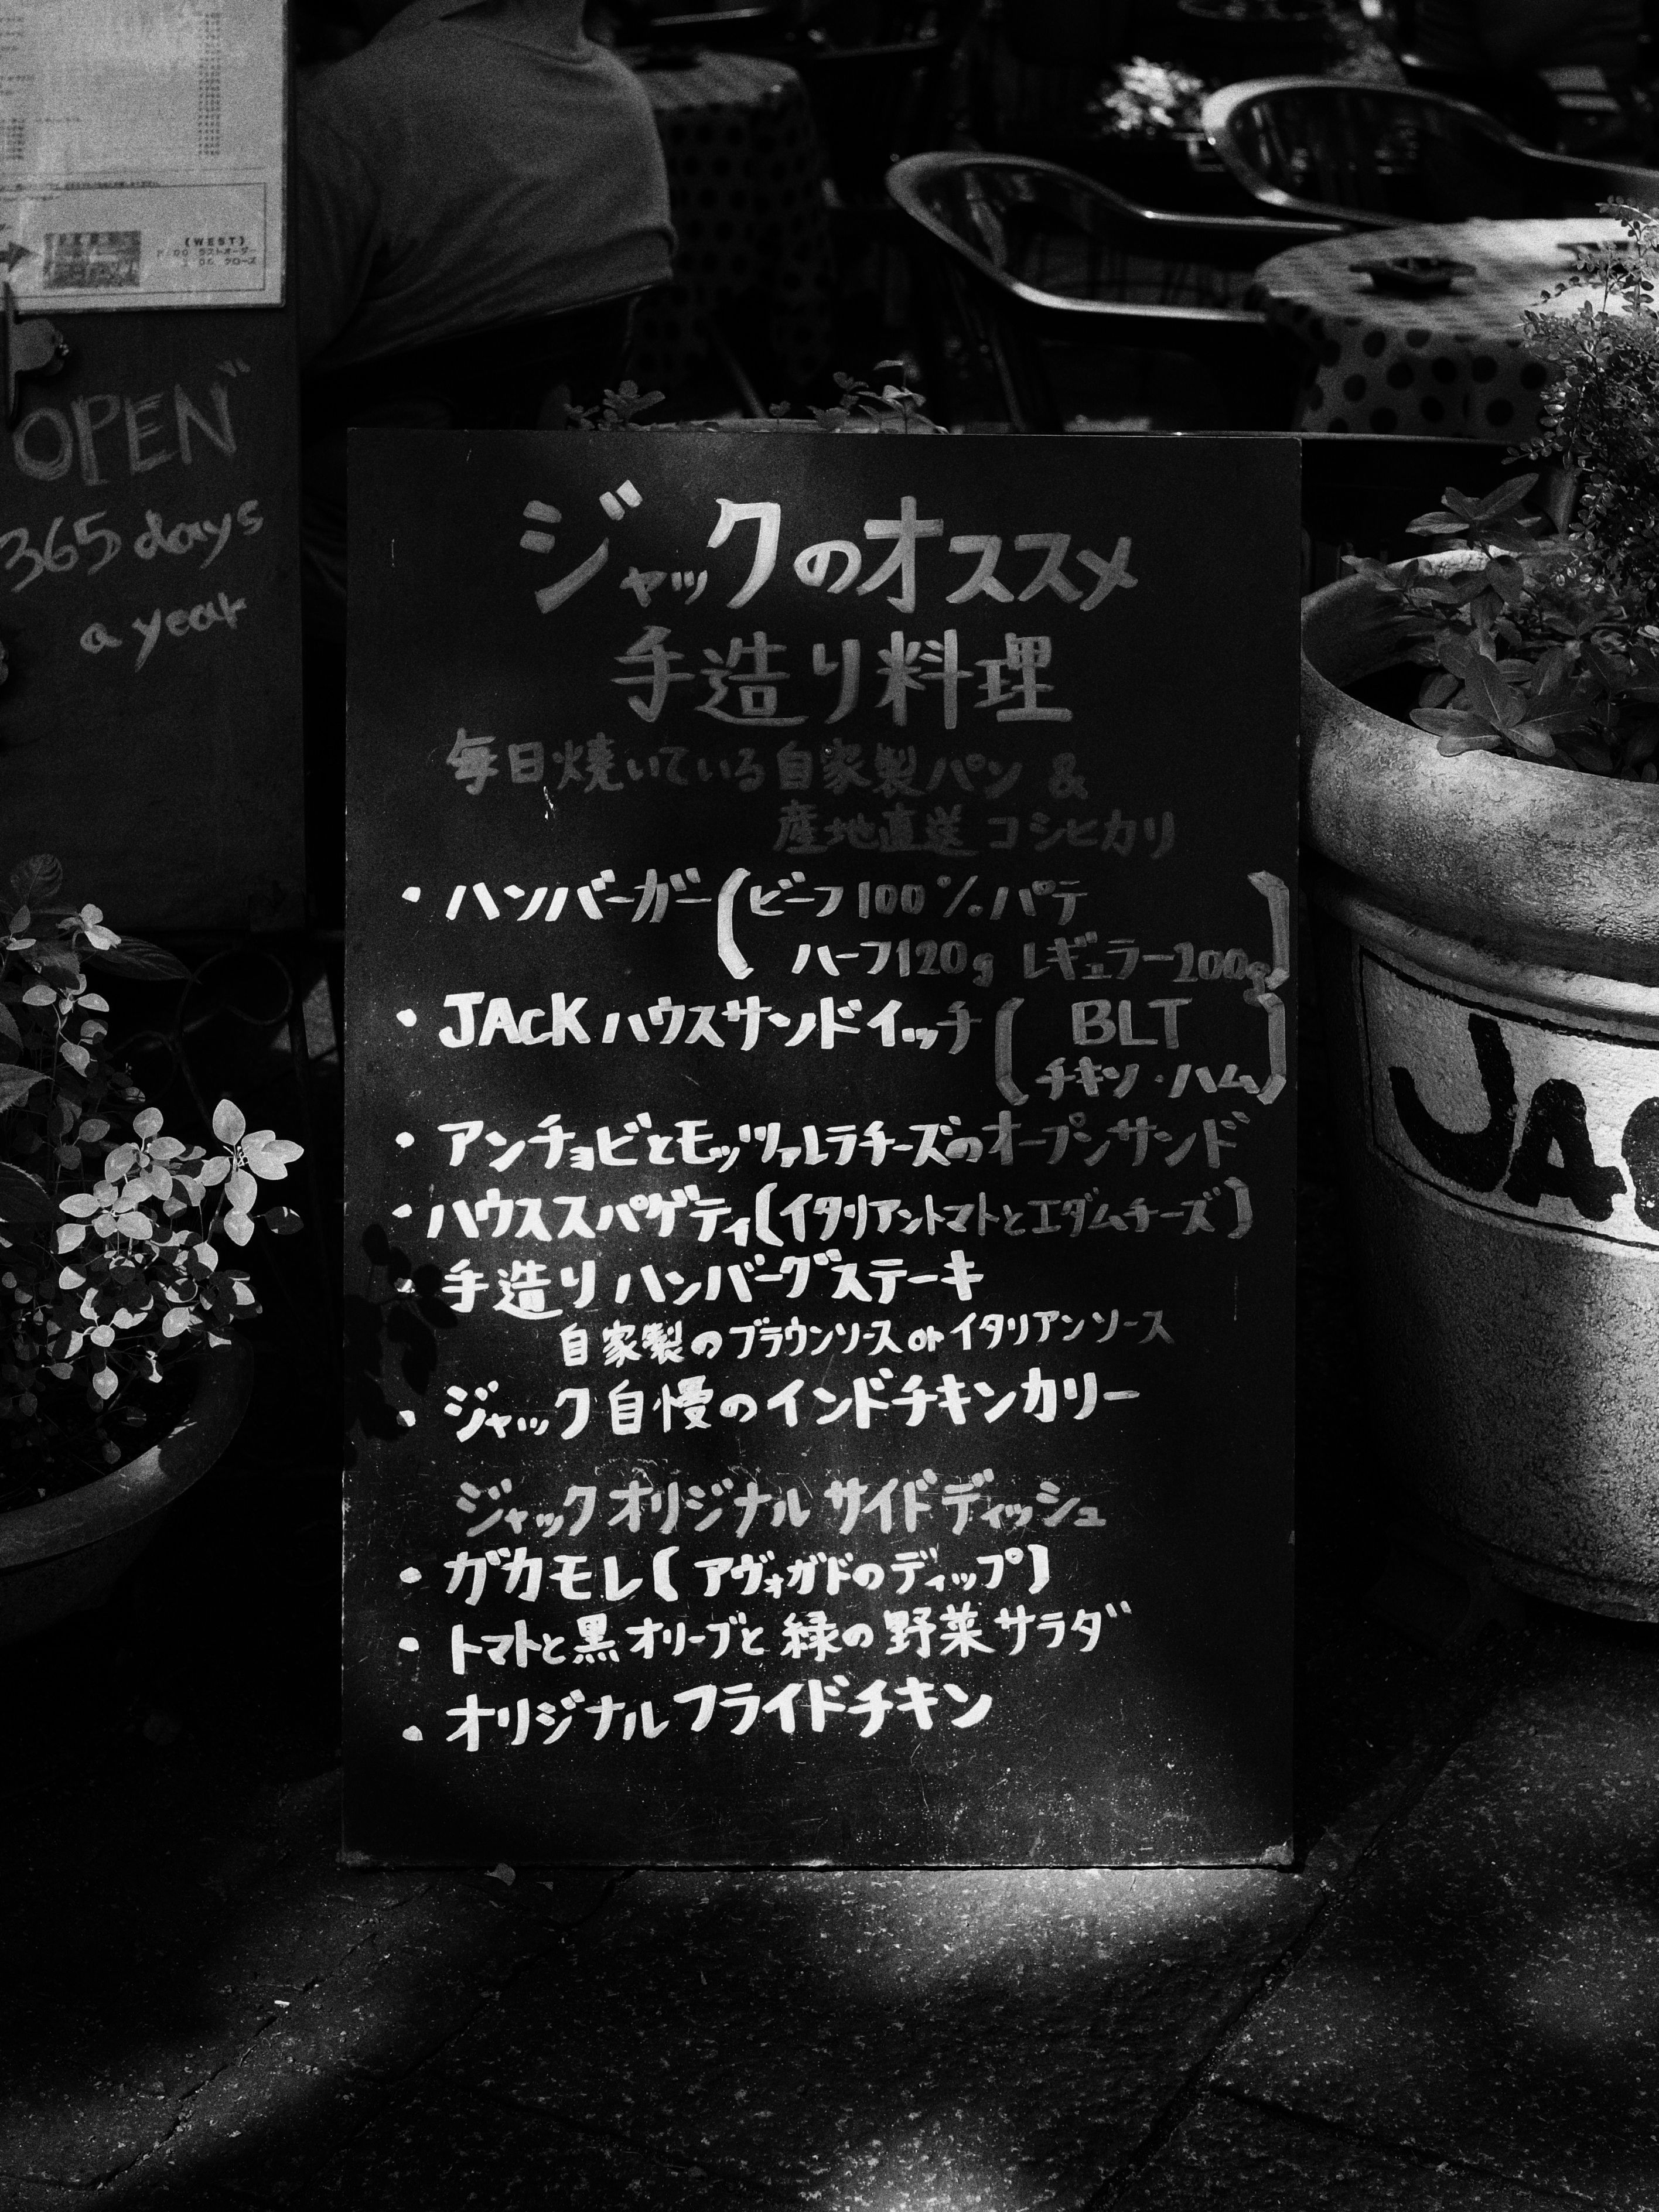 (WEST)
ラストオーダー
クローズ
OPEN"
365 days
a year
ジャックのオススメ
手造り料理
毎日焼いている自家製パン &
産地直送 コシヒカリ
・ハンバーガー(ビーフ100%パテ
ハーフ120g レギュラー200g)
・JAcK ハウスサンドイッチ( BLT
チキン・ハム)
・アンチョビとモッツァレラチーズのオープンサンド
・ハウススパゲティ(イタリアントマトとエダムチーズ)
・手造り ハンバーグステーキ
自家製のブラウンソース or イタリアンソース
・ジャック自慢のインドチキンカリー
ジャックオリジナル サイドディッシュ
・ガカモレ(アヴォガドのディップ)
・トマトと黒オリーブと緑の野菜サラダ
・オリジナルフライドチキン